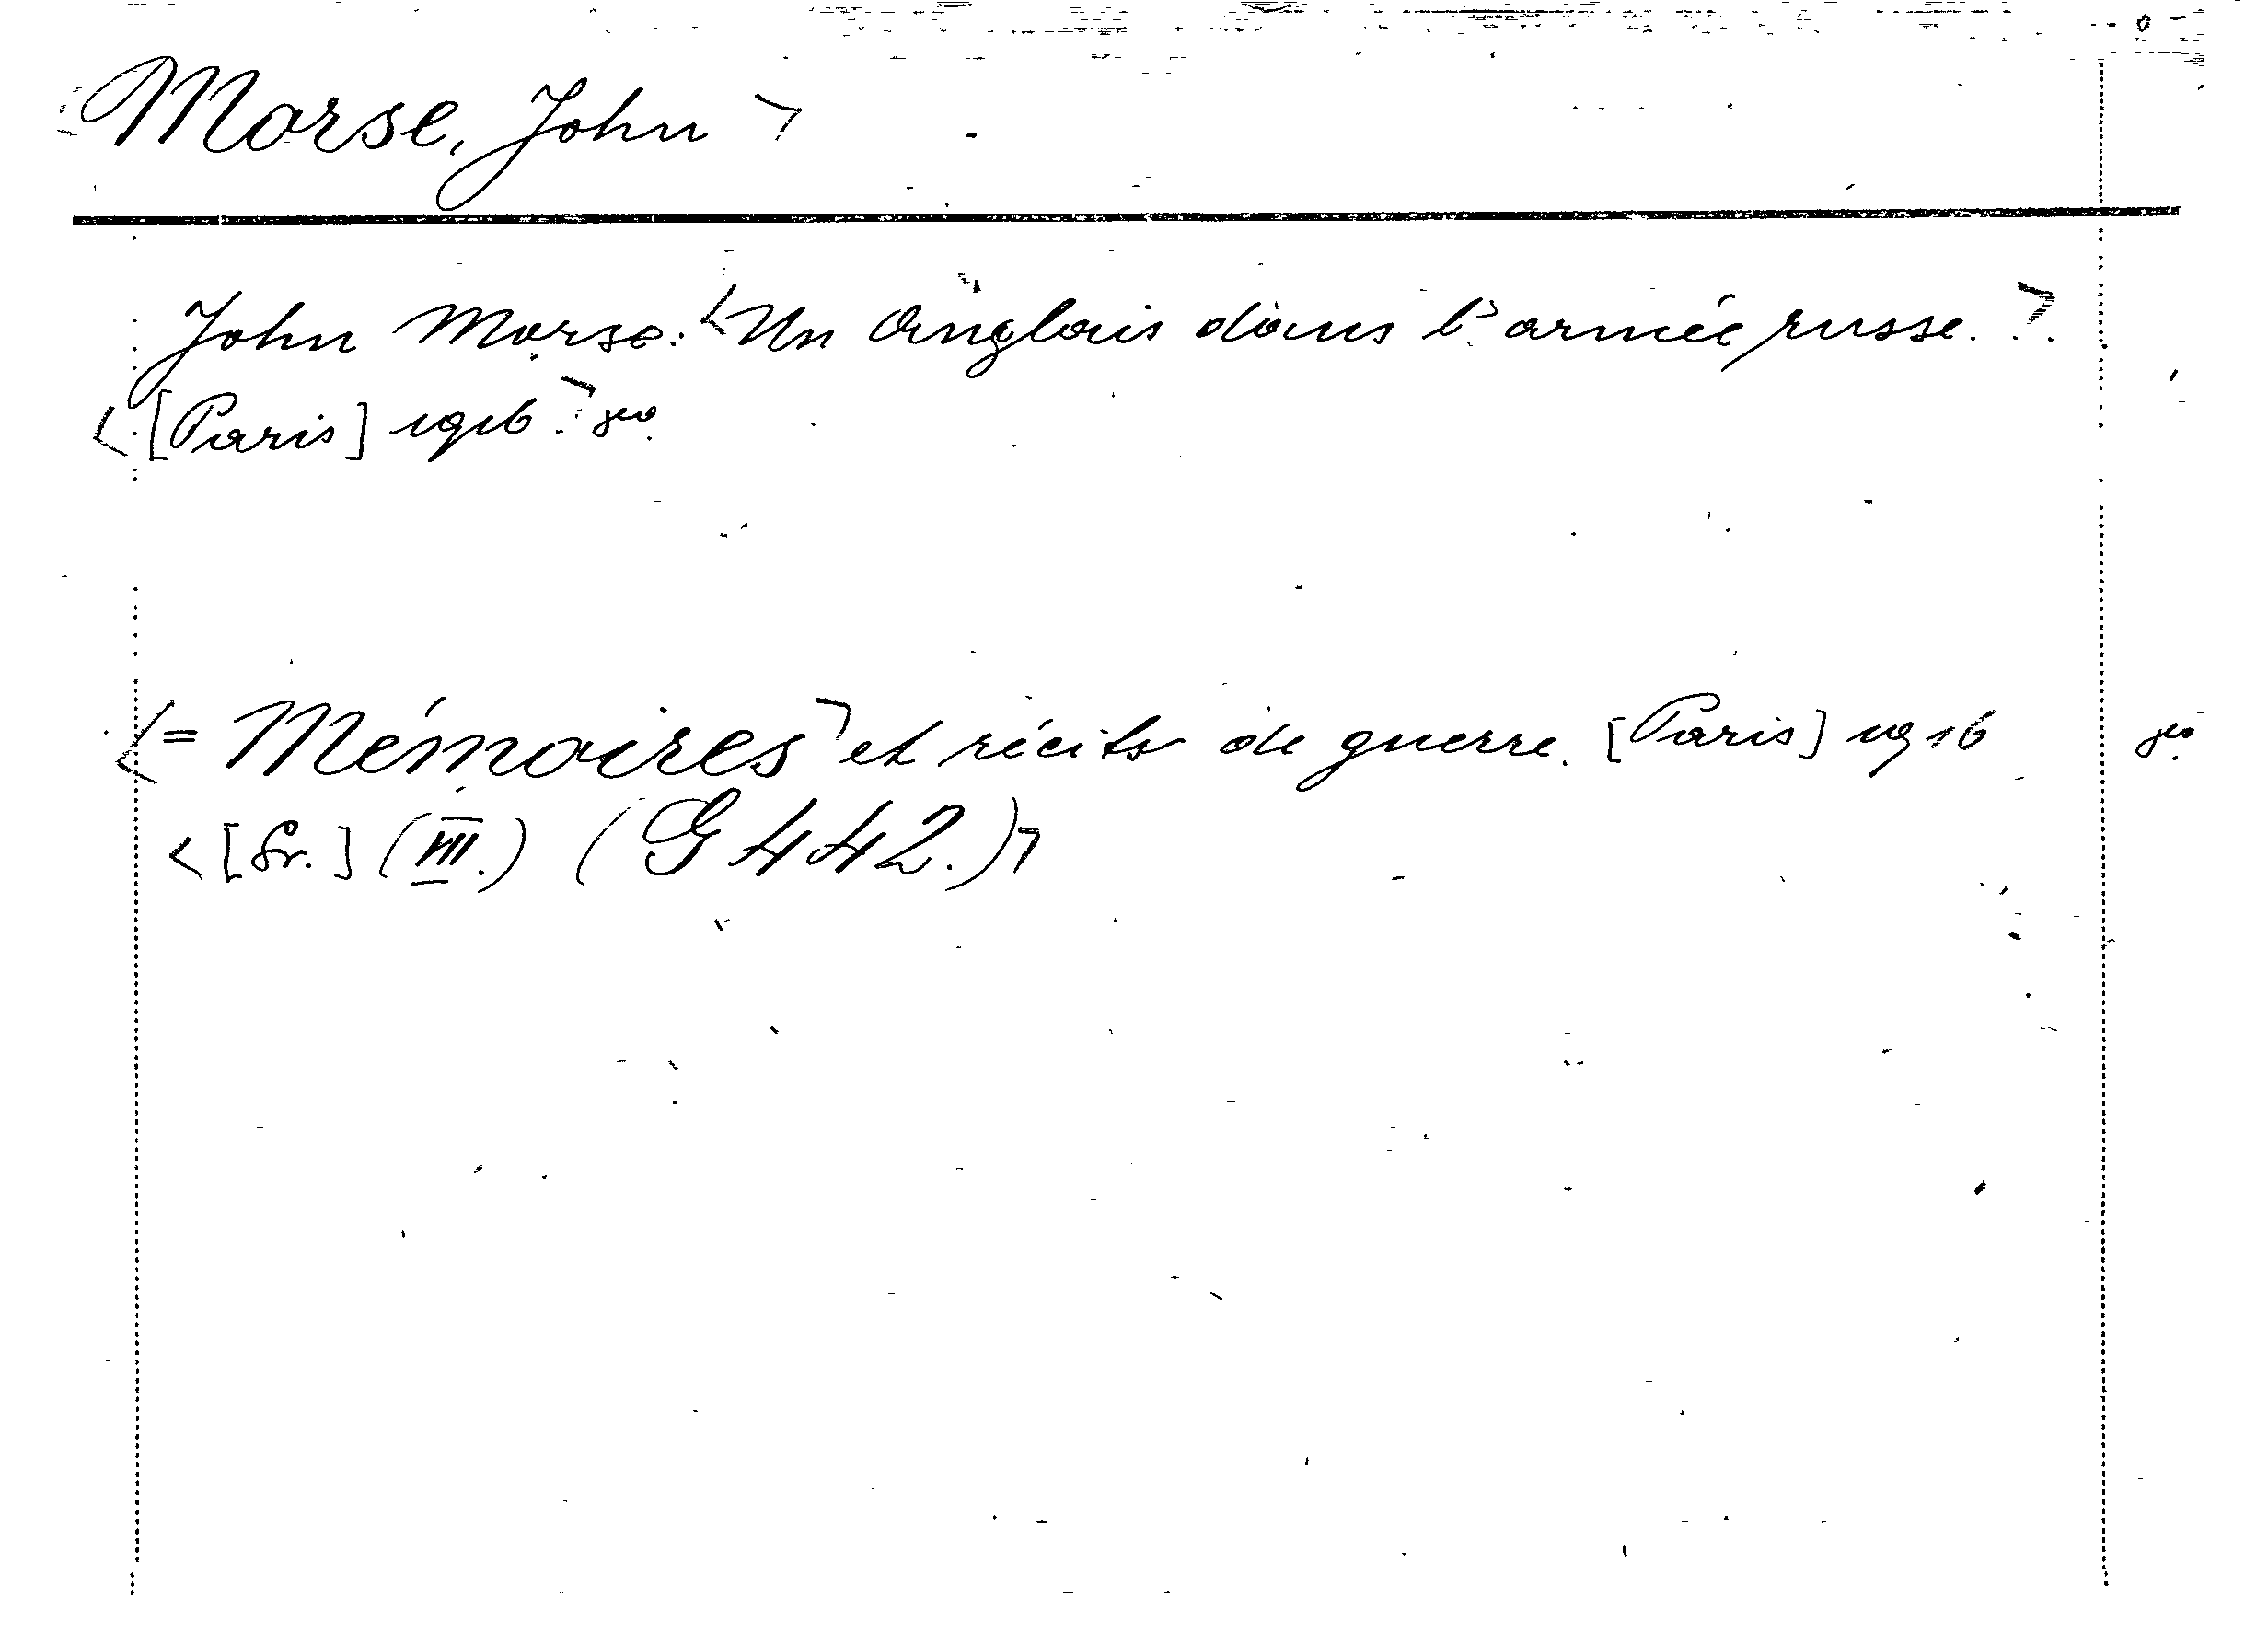 Morse, John
John Morse: Un Anglais dans l'armée russe.
[Paris] 1916. 8vo.
= Mémoires et récits de guerre. [Paris] 1916
[Fr.] (VIII.) (G 442.)